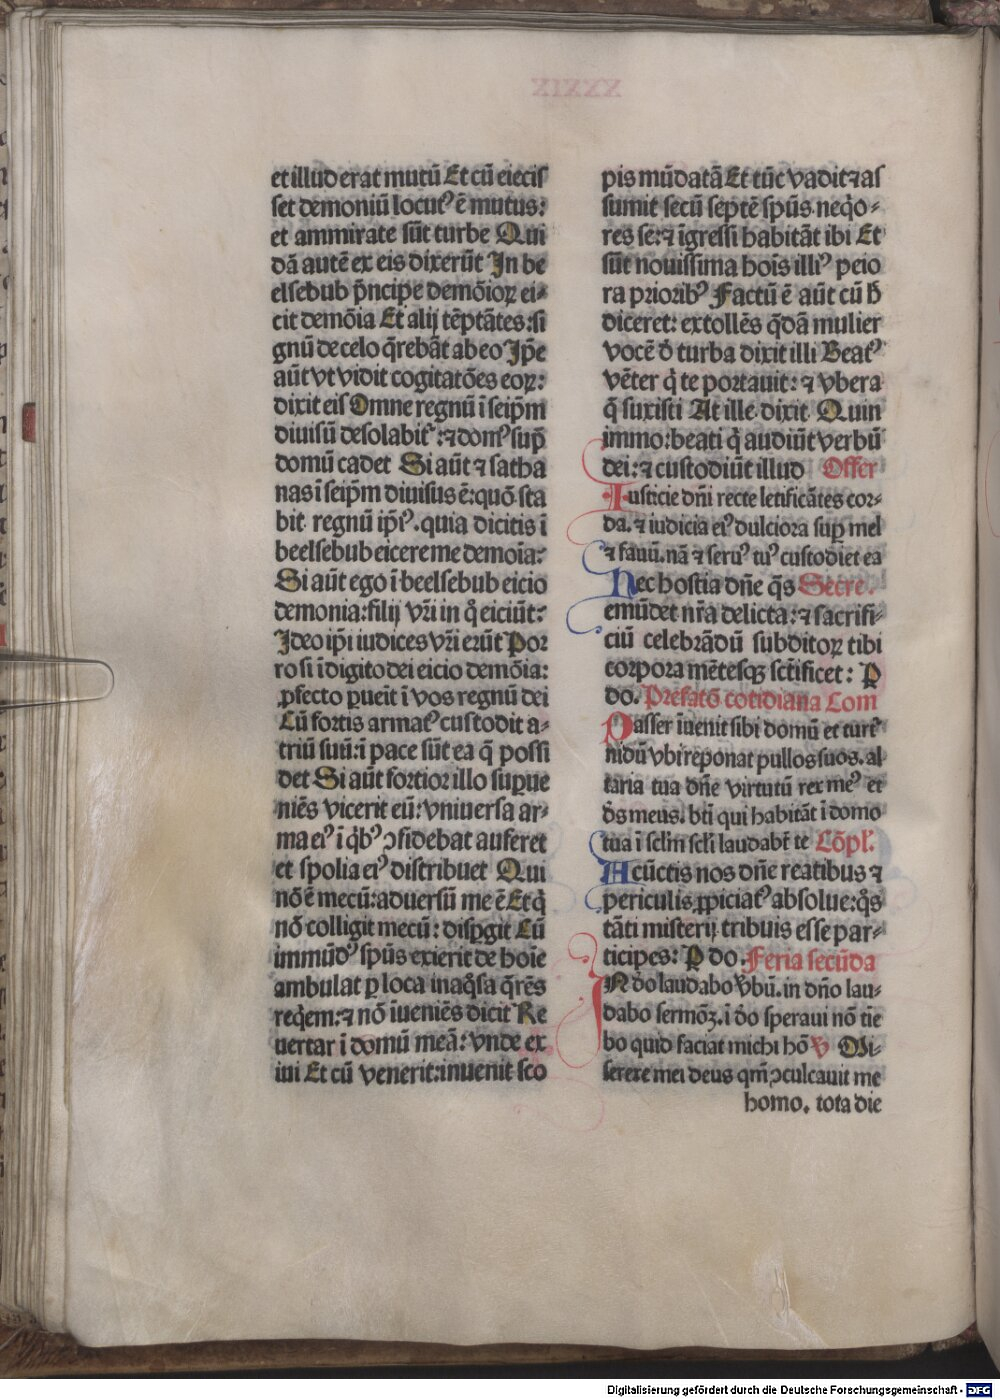 et illud erat mutū Et cū eiecis
set demoniū locutꝰ ē mutus:
et ammirate sūt turbe Qui
dā autē ex eis dixerūt In be
elsebub p̄ncipe demōioꝝ ei-
cit demōia Et alij tēptātes: si
gnū de celo q̄rebāt ab eo Ip̄e
aūt vt vidit cogitatōes eoꝝ:
dixit eis Omne regnū ī seip̄m
diuisū desolabit᷑: ⁊ domꝰ sup̄
domū cadet Si aūt ⁊ satha
nas ī seip̄m diuisus ē: quō sta
bit regnū ip̄iꝰ. quia dicitis ī
beelsebub eicere me demoīa:
Si aūt ego ī beelsebub eicio
demonia: filij vr̄i in q̊ eiciūt:
Ideo ip̄i iudices vr̄i erūt Por
ro si ī digito dei eicio demōia:
ꝓfecto ꝑueīt ī vos regnū dei
Cū fortis armatꝰ custodit a-
triū suū: ī pace sūt ea q̄ possi
det Si aūt fortior illo suꝑue
niēs vicerit eū: vniuersa ar-
ma eiꝰ ī qͥbꝰ ↄfidebat auferet
et spolia eiꝰ distribuet Qui
nō ē mecū: aduersū me ē Et qͥ
nō colligit mecū: disꝑgit Cū
immūdꝰ sp̄us exierit de hoīe
ambulat ꝑ loca inaq̊sa q̄rēs
req̊em: ⁊ nō īueniēs dicit Re
uertar ī domū meā: vnde ex
iui Et cū venerit: inuenit sco
pis mūdatā Et tūc vadit ⁊ as
sumit secū septē sp̄us neq̊o-
res se: ⁊ īgressi habitāt ibi Et
sūt nouissima hoīs illiꝰ peio
ra prioribꝰ Factū ē aūt cū h̄
diceret: extollēs q̄dā mulier
vocē d̄ turba dixit illi Beatꝰ
vēter qͥ te portauit: ⁊ vbera
q̄ suxisti At ille dixit Quin
immo: beati qͥ audiūt verbū
dei: ⁊ custodiūt illud Offer
Iusticie dn̄i recte letificātes cor-
da. ⁊ iudicia eiꝰ dulciora suꝑ mel
⁊ fauū. nā ⁊ seruꝰ tuꝰ custodiet ea
Hec hostia dn̄e q̄s Secre.
emūdet nr̄a delicta: ⁊ sacrifi-
ciū celebrādū subditoꝝ tibi
corpora mētesqꝫ sc̄tificet: P
do. Prefatō cotidiana Com
Passer īuenit sibi domū et turtꝰ
nidū vbi reponat pullos suos. al
taria tua dn̄e virtutū rex meꝰ et
d̄s meus. bt̄i qui habitāt ī domo
tua ī sc̄lm sc̄li laudabt̄ te Cōpl'.
A cūctis nos dn̄e reatibus ⁊
periculis ꝓpiciatꝰ absolue: q̄s
tāti misterij tribuis esse par-
ticipes: P do. Feria secūda
IN do laudabo v̄bū. in dn̄o lau-
dabo sermōꝫ. ī do speraui nō tīe
bo quid faciat michi hō V Mi-
serere mei deus qm̄ ↄculcauit me
homo. tota die
XXXIX
Digitalisierung gefördert durch die Deutsche Forschungsgemeinschaft - DFG